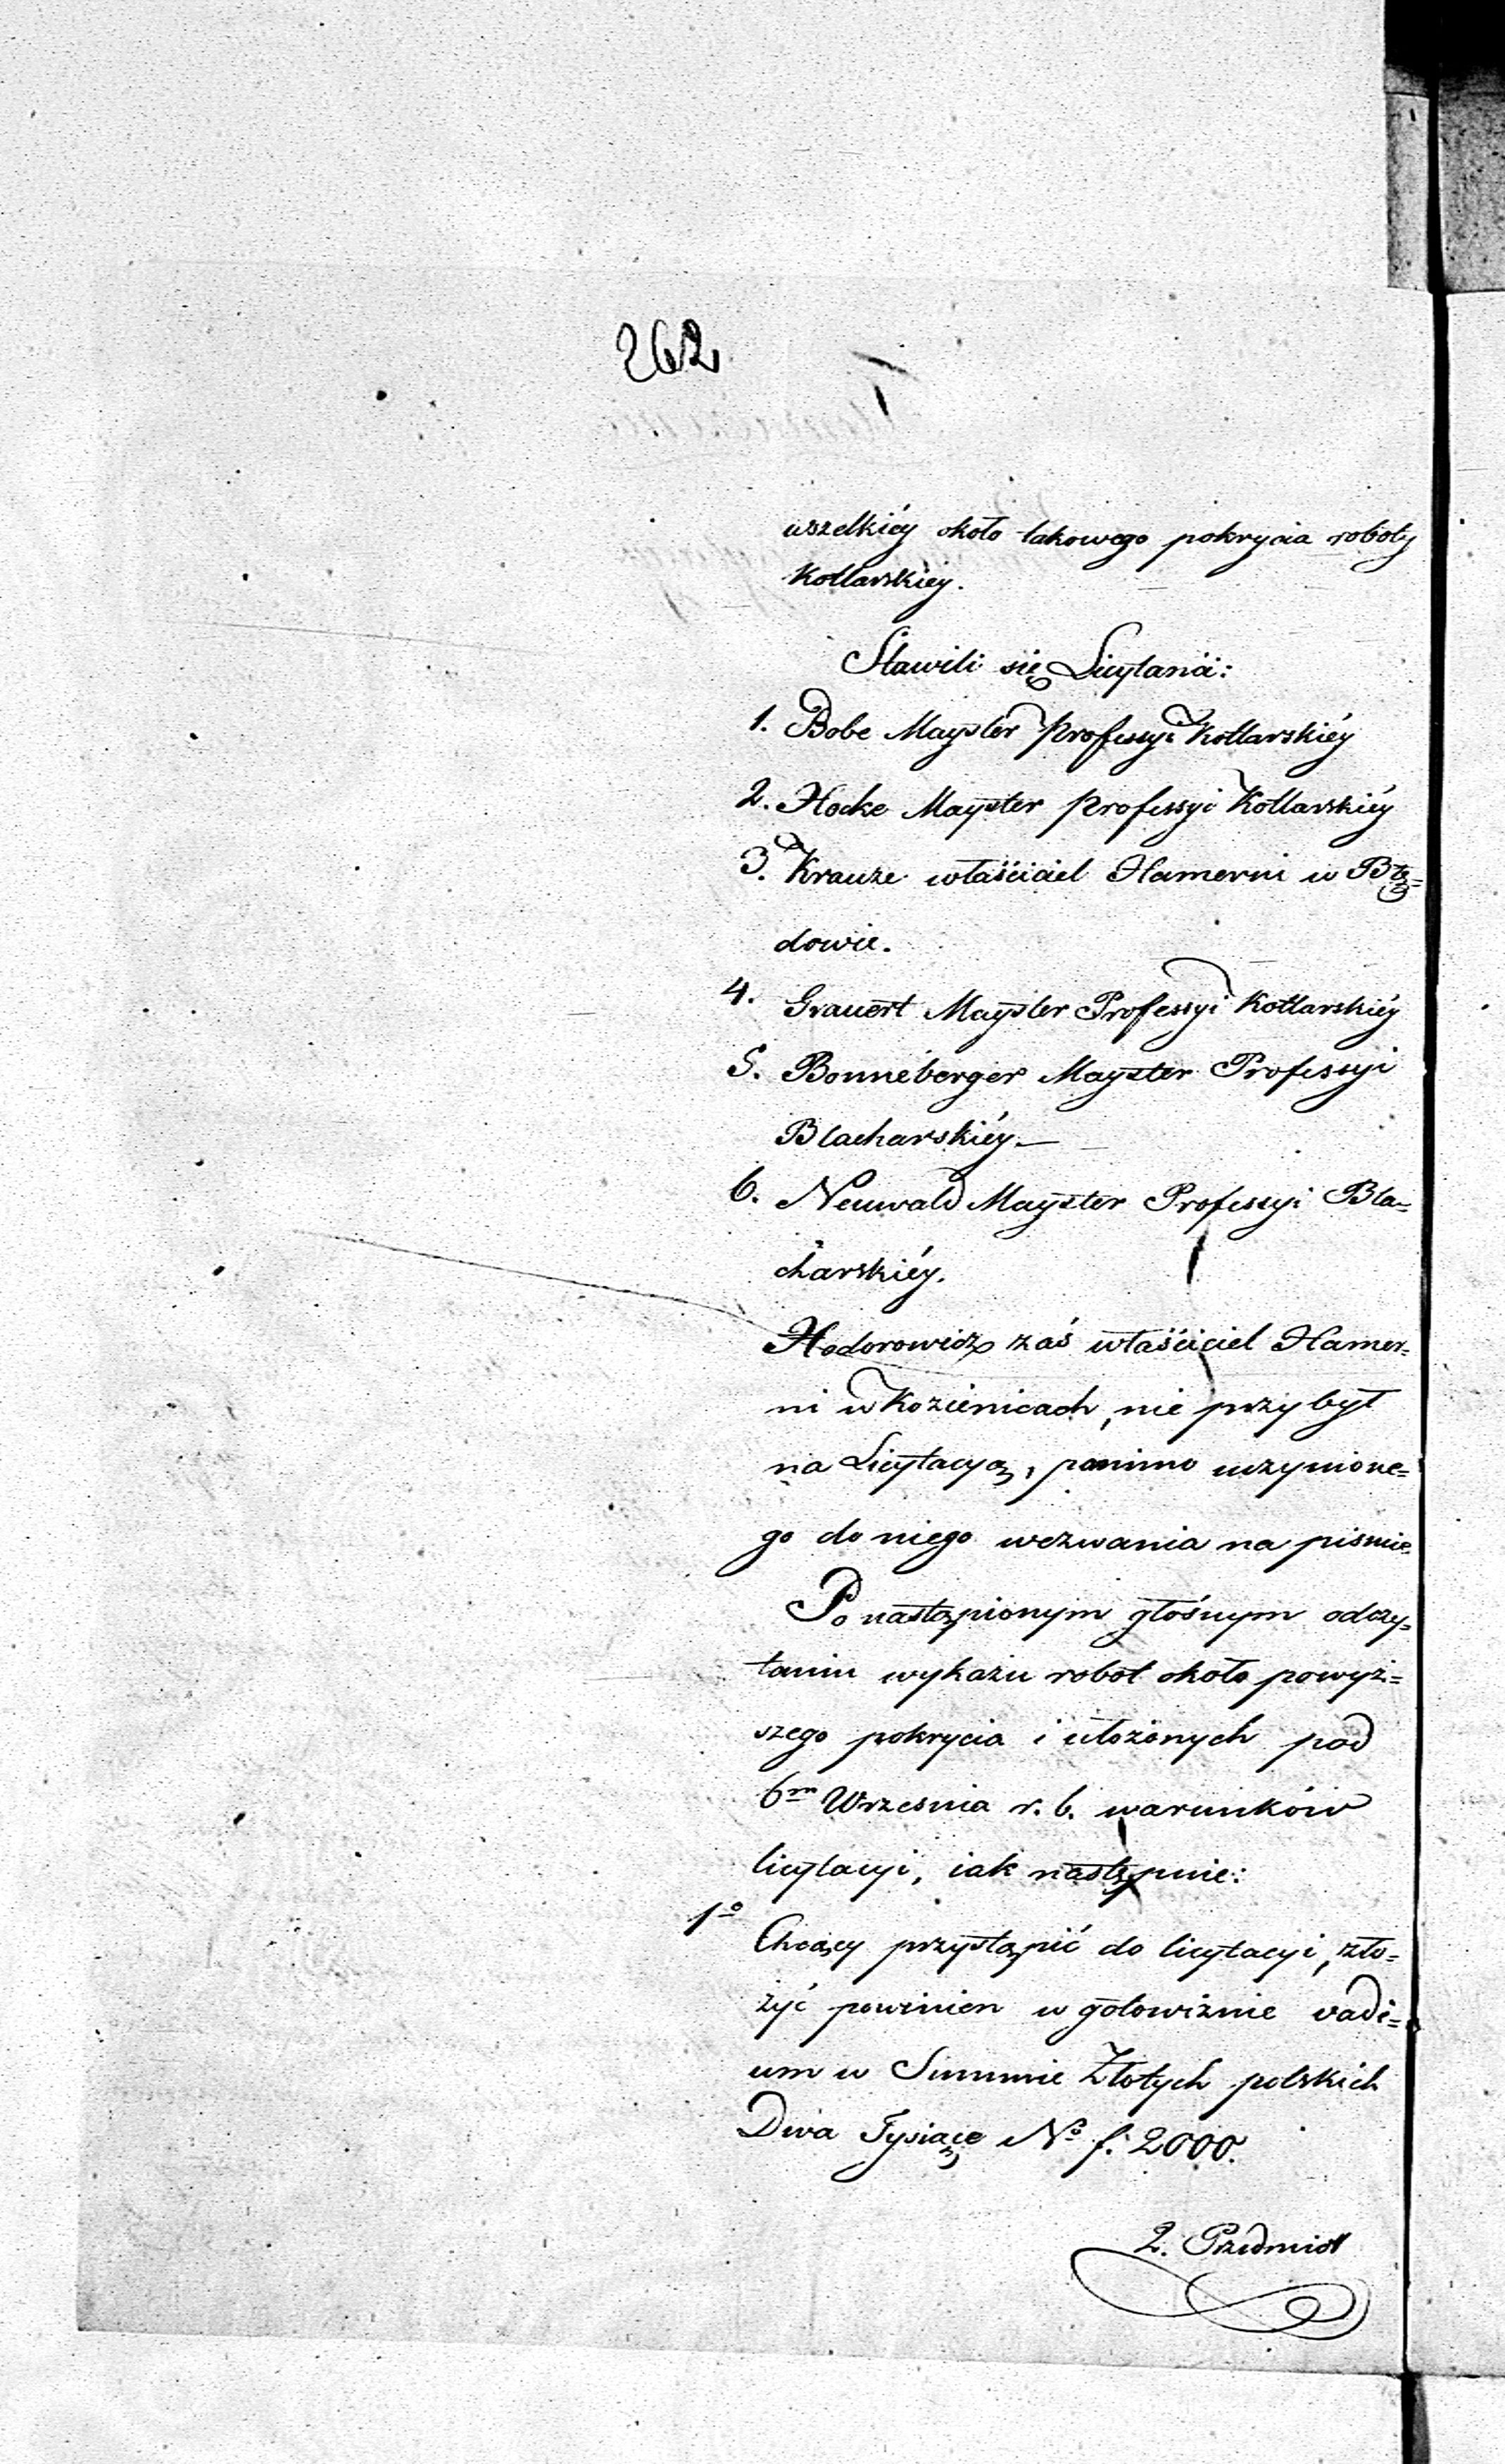 262
wszelkiéy około takowego pokrycia roboty
Kotlarskiéy.
Stawili się Licytanci:
1. Bobe Mayster Professyi Kotlarskiéy
2. Hocke Mayster Professyi Kotlarskiéy
3. Krauze właściciel Hamerni w Błę=
dowie.
4. Grauert Mayster Professyi Kotlarskiéy
5. Bonneberger Mayster Professyi
Blacharskiéy.—
6. Neuwald Mayster Professyi Bla=
charskiéy.
Hodorowicz zaś właściciel Hamer=
ni w Kozienicach, nie przybył
na Licytacyą, pomimo uczynione=
go do niego wezwania na pismie.
Po nastąpionym głośnym odczy=
taniu wykazu robot około powyż=
szego pokrycia i ułożonych pod
6m Wrzesnia r. b. warunków
licytacyi, iak następnie:
1o Chcący przystąpić do licytacyi, zło=
żyć powinien w gotowiznie vadi=
um w Summie Złotych polskich
Dwa Tysiące No f. 2000.
2. Przedmiot